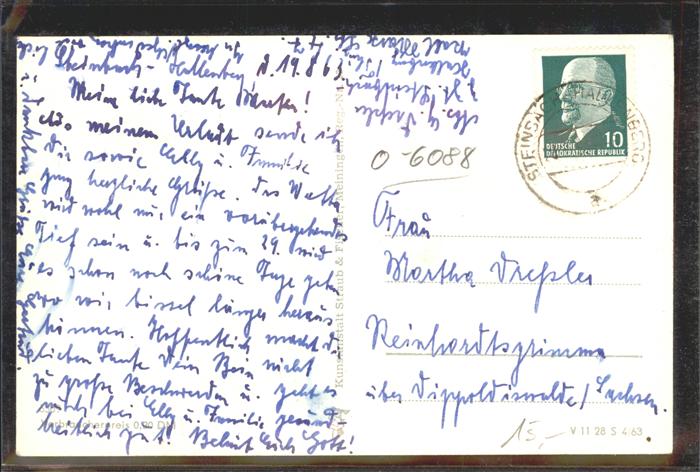 Steinbach-Hallenberg, d. 19.8.63.
Meine liebe Tante Martha!
Aus meinem Urlaub sende ich
Dir sowie Elly u. Familie
ganz herzliche Grüße. Das Wetter
wird wohl nur ein vorübergehendes
Tief sein u. bis zum 29. wird
es schon noch schöne Tage geben
wo wir bissel länger heraus
können. Hoffentlich macht Dir
lieben Tante Dein Bein nicht
zu große Beschwerden u. geht es
auch bei Elly u. Familie gesund-
heitlich gut! Behüt Euch Gott!
Verbraucherpreis 0,20 DM
Kunstanstalt Straub & Fischer, Meiningen
0-6088
DEUTSCHE
DEMOKRATISCHE REPUBLIK
10
Frau
Martha Dreßler
Reinhardtsgrimma
über Dippoldiswalde/Sachsen.
15,-
V 11 28 S 4/63